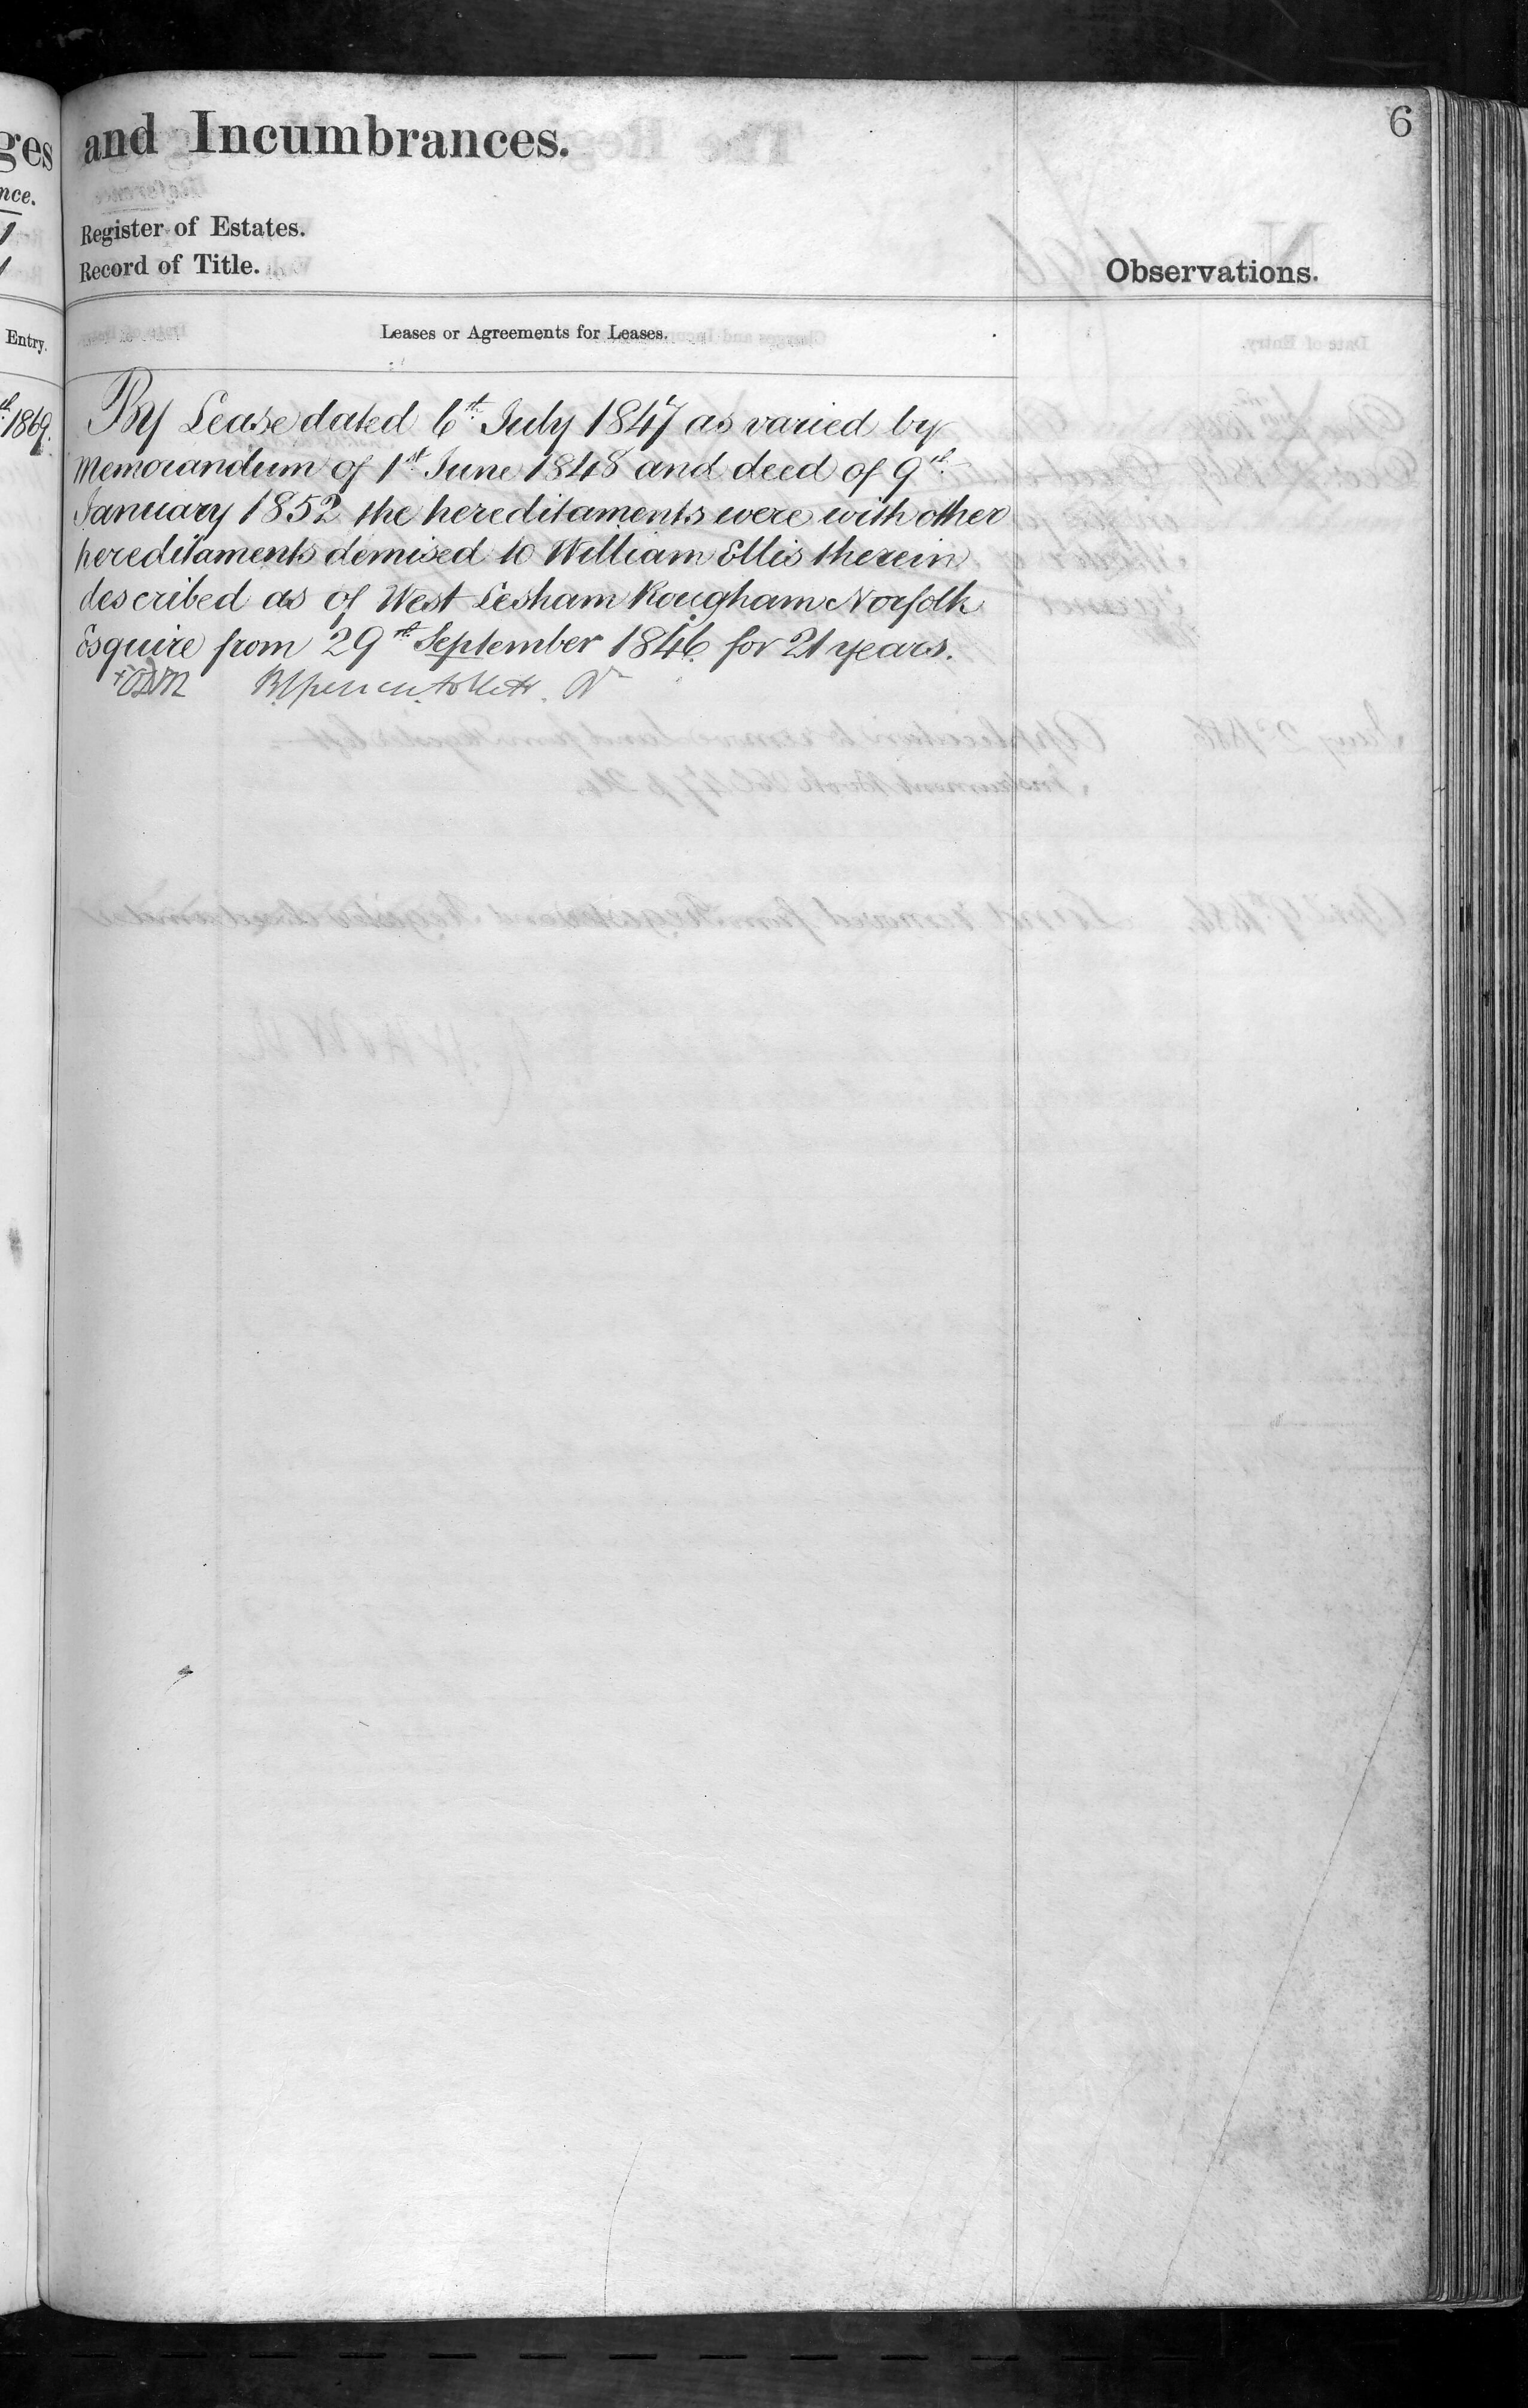 ges
nce.
1
1
Entry.
th 1869.
and Incumbrances.
6
Register of Estates.
Record of Title.
Observations.
Leases or Agreements for Leases.
By Lease dated 6th July 1847 as varied by
Memorandum of 1st June 1848 and deed of 9th
January 1852 the hereditaments were with other
hereditaments demised to William Ellis therein
described as of West Lesham Rougham Norfolk
Esquire from 29th September 1846 for 21 years.